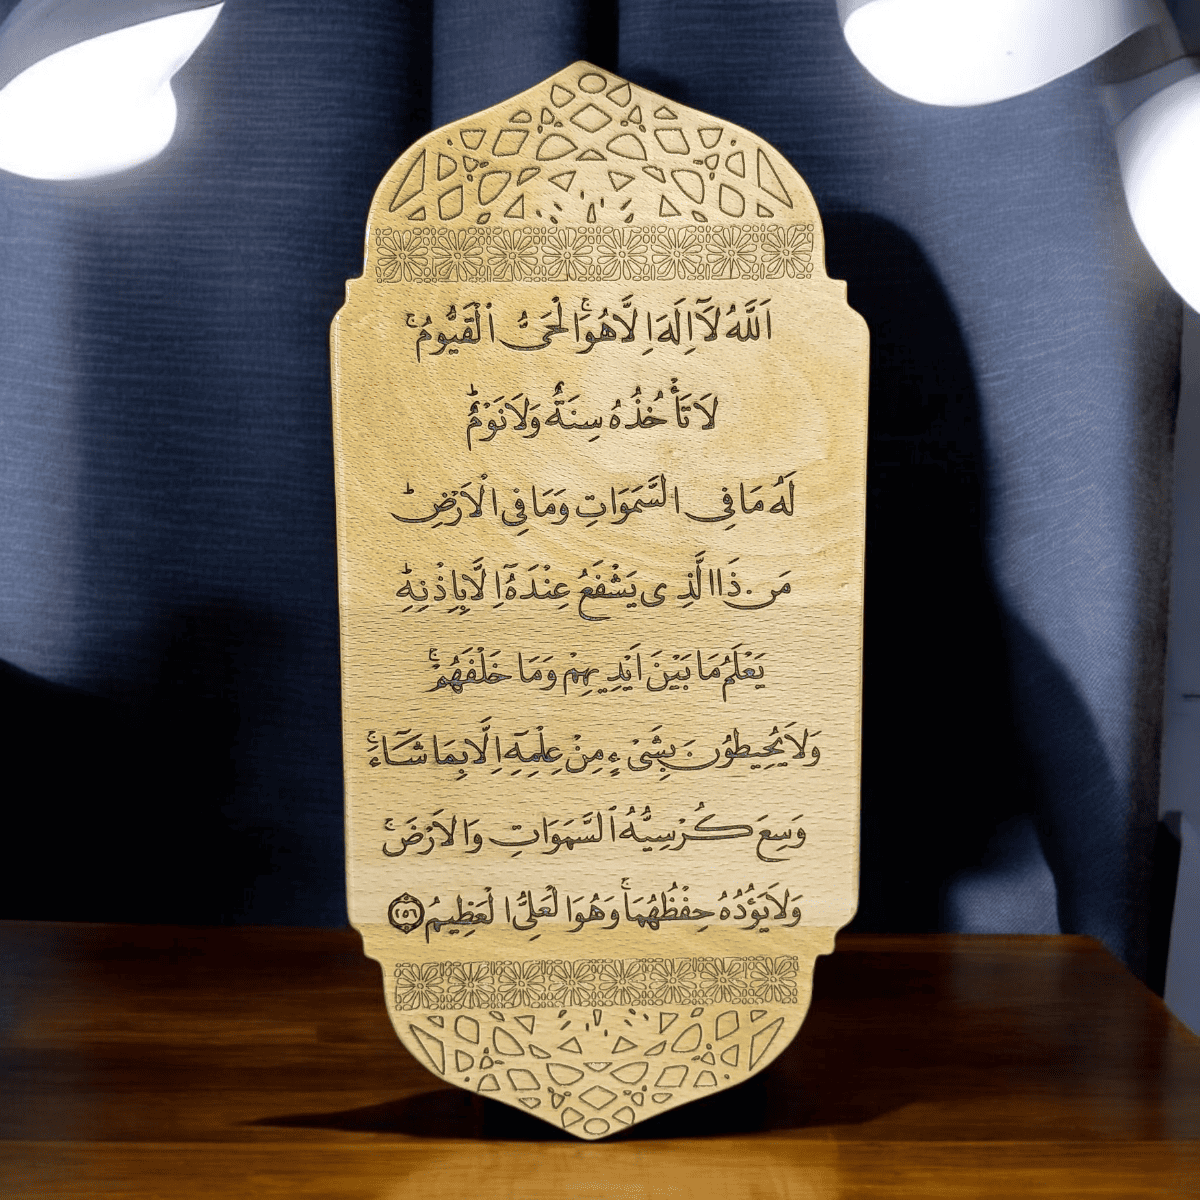 اَللّٰهُ لَٓا اِلٰهَ اِلَّا هُوَۚ اَلْحَىُّ الْقَيُّومُۚ
لَا تَأْخُذُهُ سِنَةٌ وَلَا نَوْمٌۜ
لَهُ مَا فِى السَّمٰوَاتِ وَمَا فِى الْاَرْضِۜ
مَنْ ذَا الَّذِى يَشْفَعُ عِنْدَهُٓ اِلَّا بِاِذْنِهِۜ
يَعْلَمُ مَا بَيْنَ اَيْدِيهِمْ وَمَا خَلْفَهُمْۚ
وَلَا يُحِيطُونَ بِشَىْءٍ مِنْ عِلْمِهِٓ اِلَّا بِمَا شَٓاءَۚ
وَسِعَ كُرْسِيُّهُ السَّمٰوَاتِ وَالْاَرْضَۚ
وَلَا يَؤُدُهُ حِفْظُهُمَاۚ وَهُوَ الْعَلِىُّ الْعَظِيمُ ٢٥٦